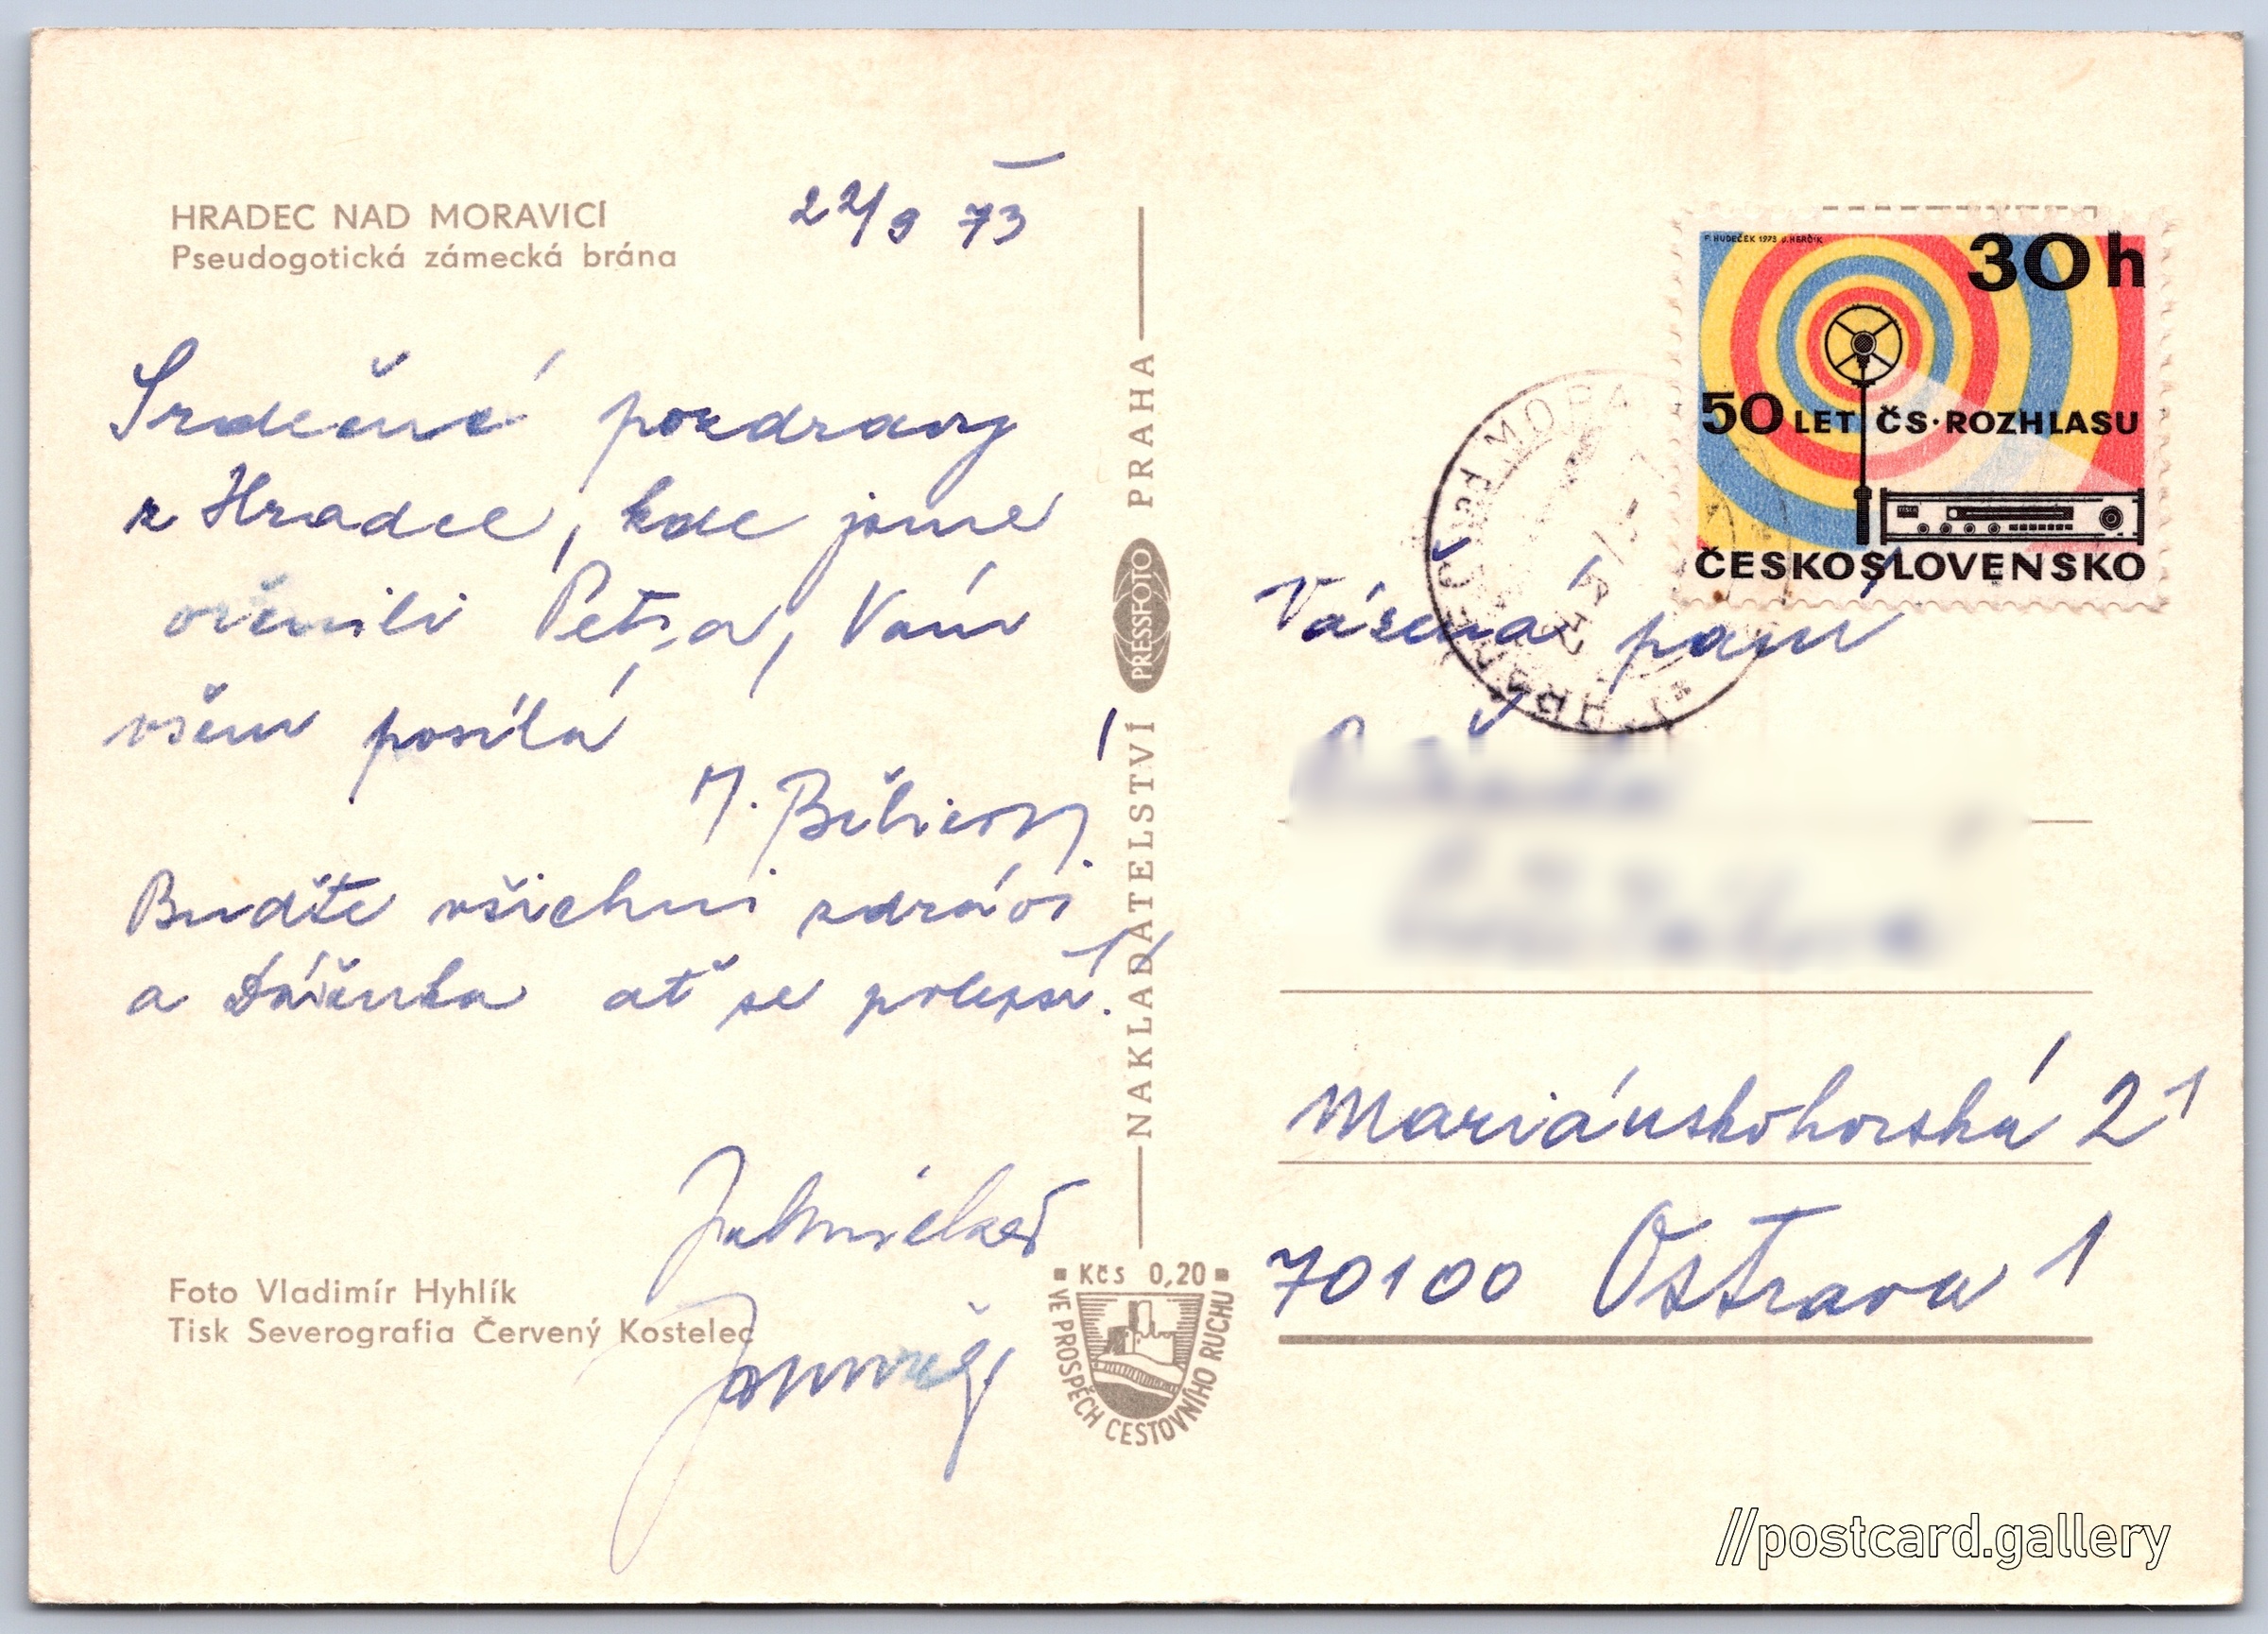 HRADEC NAD MORAVICÍ
Pseudogotická zámecká brána
22/9 73
Srdečné pozdravy
z Hradce, kde jsme
oženili Petra, Vám
všem posílá
Buďte všichni zdrávi
a ať se polepší.
Foto Vladimír Hyhlík
Tisk Severografia Červený Kostelec
NAKLADATELSTVÍ PRESSFOTO PRAHA
Kčs 0,20
VE PROSPĚCH CESTOVNÍHO RUCHU
F. HUDEČEK 1973 J. HERČÍK
30 h
50 LET ČS·ROZHLASU
ČESKOSLOVENSKO
HRADEC nad MORAV
Vážená paní
Mariánskohorská 21
70100 Ostrava 1
//postcard.gallery